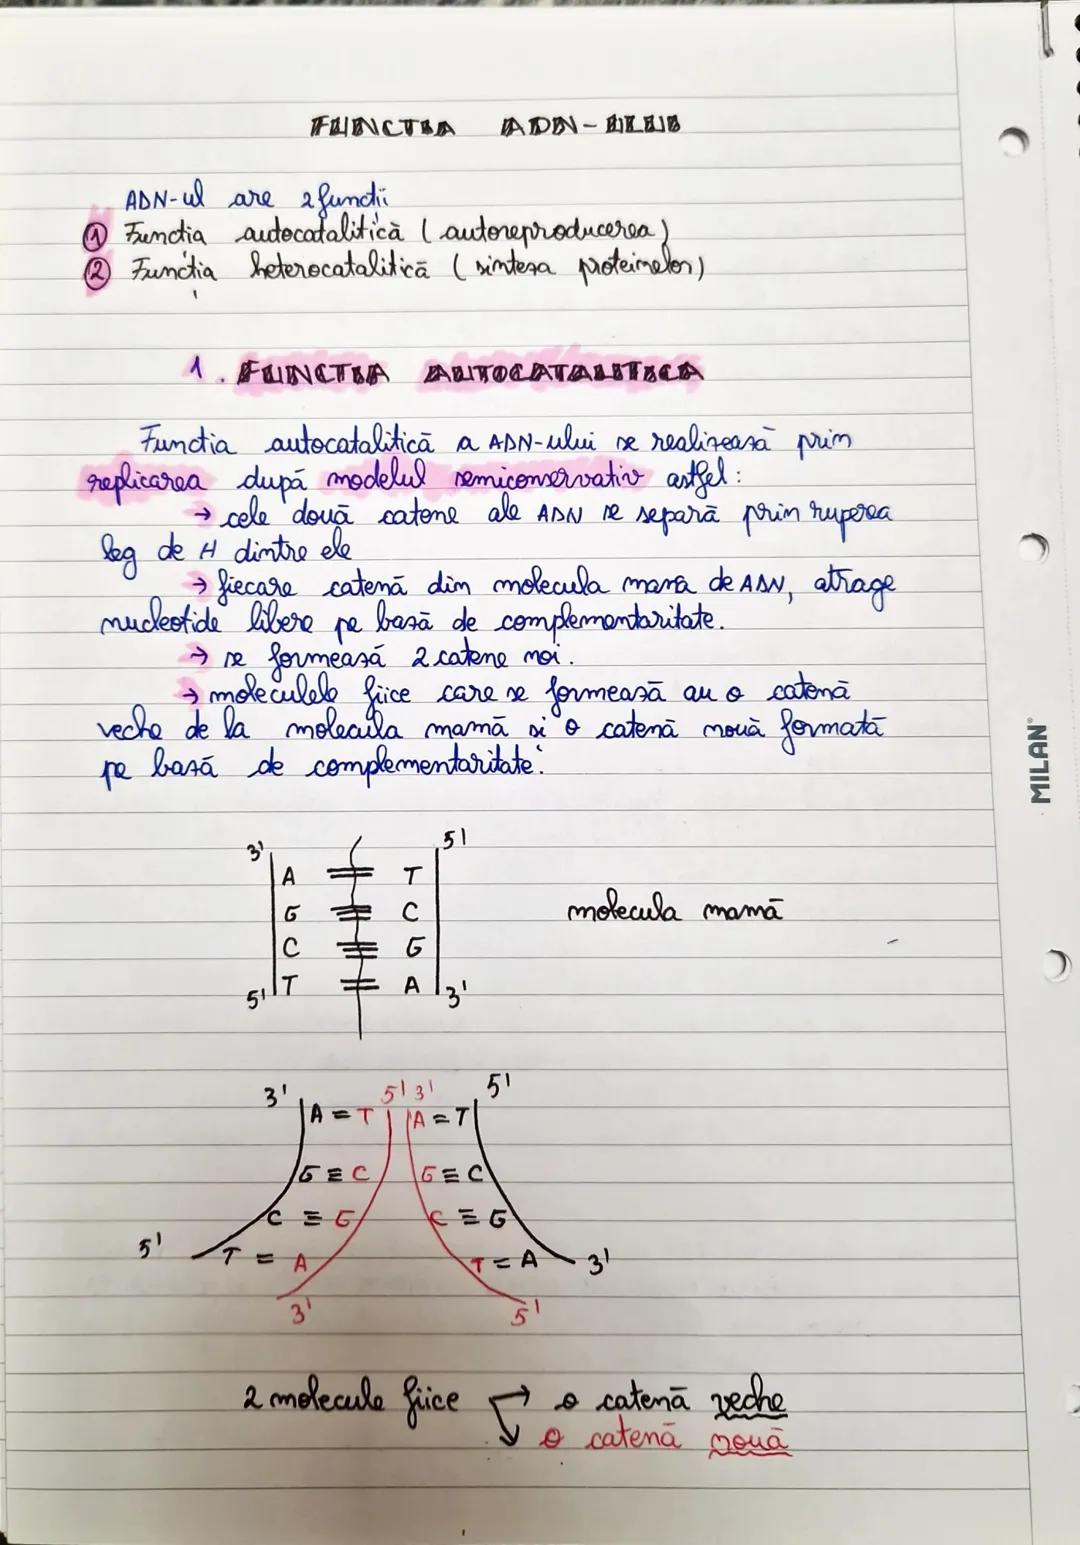 FUNCTIA ADN-ULUI
ADN-ul are 2 funcții
1 Funcția autocatalitică (autoreproducerea)
2 Funcția heterocatalitică (sinteza proteinelor)
1. FUNCTIA AUTOCATALITICA
Functia autocatalitică a ADN-ului se realizează prin
replicarea după modelul semiconservativ astfel:
→ cele două catene ale ADN se separă prin ruperea
leg de H dintre ele
→ fiecare catenă din molecula mamă de ADN, atrage
nucleotide libere pe bază de complementaritate.
→ se formează 2 catene noi.
→ moleculele fiice care se formează au o catenă
veche de la molecula mamă și o catenă nouă formată
pe bază de complementaritate.
3' 5'
A T
G C
molecula mamă
C G
5' T A 3'
3' 5' 3' 5'
A = T A = T
G ≡ C G ≡ C
C ≡ G C ≡ G
5' T = A T = A 3'
3' 5'
2 molecule fiice → o catenă veche
o catenă nouă
MILAN